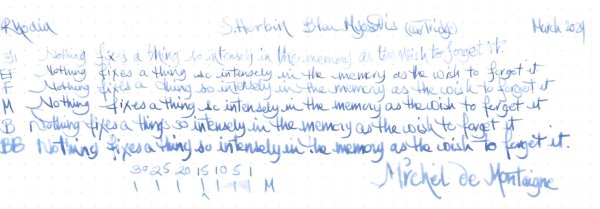 Rhodia S.Herbin Bleu Myosotis (cartridge) March 2024
EF Nothing fixes a thing so intensely in the memory as the wish to forget it.
EF Nothing fixes a thing so intensely in the memory as the wish to forget it
F Nothing fixes a thing so intensely in the memory as the wish to forget it
M Nothing fixes a thing so intensely in the memory as the wish to forget it
B Nothing fixes a thing so intensely in the memory as the wish to forget it
BB Nothing fixes a thing so intensely in the memory as the wish to forget it.
30 25 20 15 10 5 1
M
Michel de Montaigne